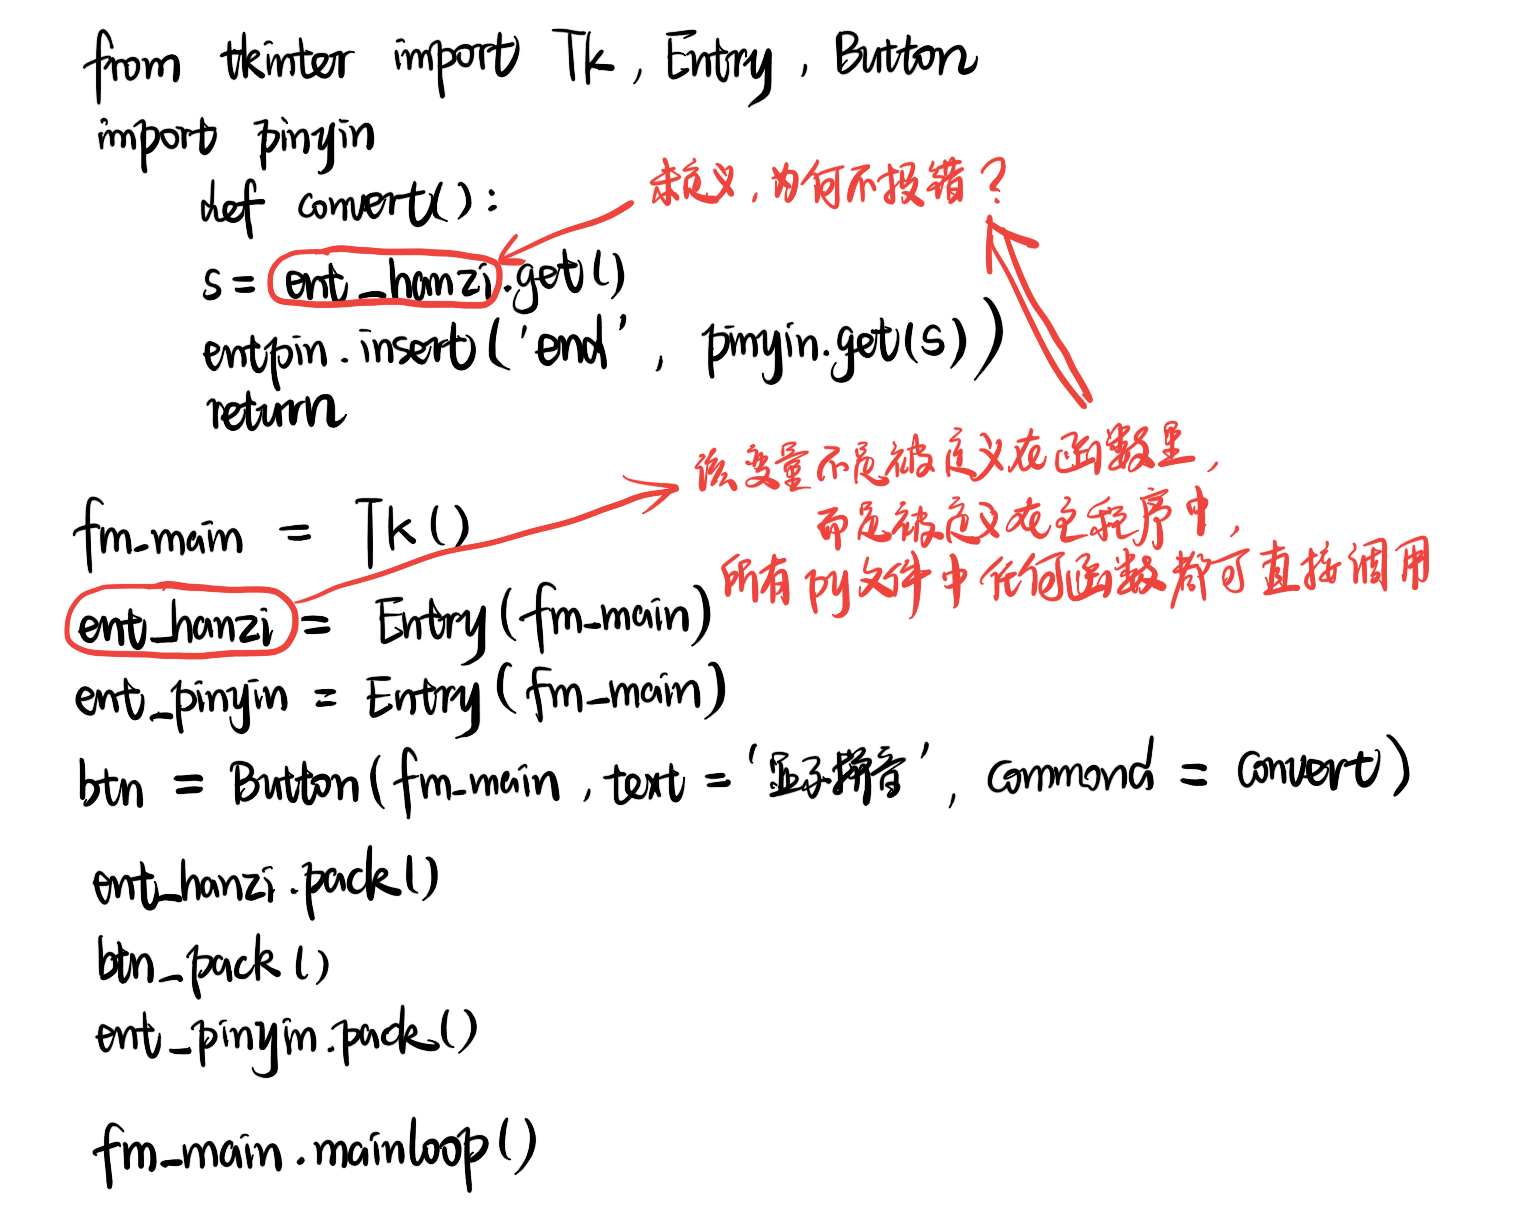 from tkinter import Tk, Entry, Button
import pinyin
def convert():
未定义,为何不报错?
s = ent_hanzi.get()
entpin.insert('end', pinyin.get(s))
return
该变量不是被定义在函数里,
而是被定义在主程序中,
所有py文件中任何函数都可直接调用
fm_main = Tk()
ent_hanzi = Entry(fm_main)
ent_pinyin = Entry(fm_main)
btn = Button(fm_main, text='显示拼音', command = convert)
ent_hanzi.pack()
btn_pack()
ent_pinyin.pack()
fm_main.mainloop()